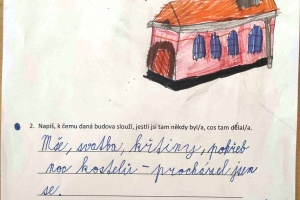 2. Napiš, k čemu daná budova slouží, jestli jsi tam někdy byl/a, cos tam dělal/a.
Mše, svatba, křtiny, pohřeb
noc kostelů – procházel jsem
se.